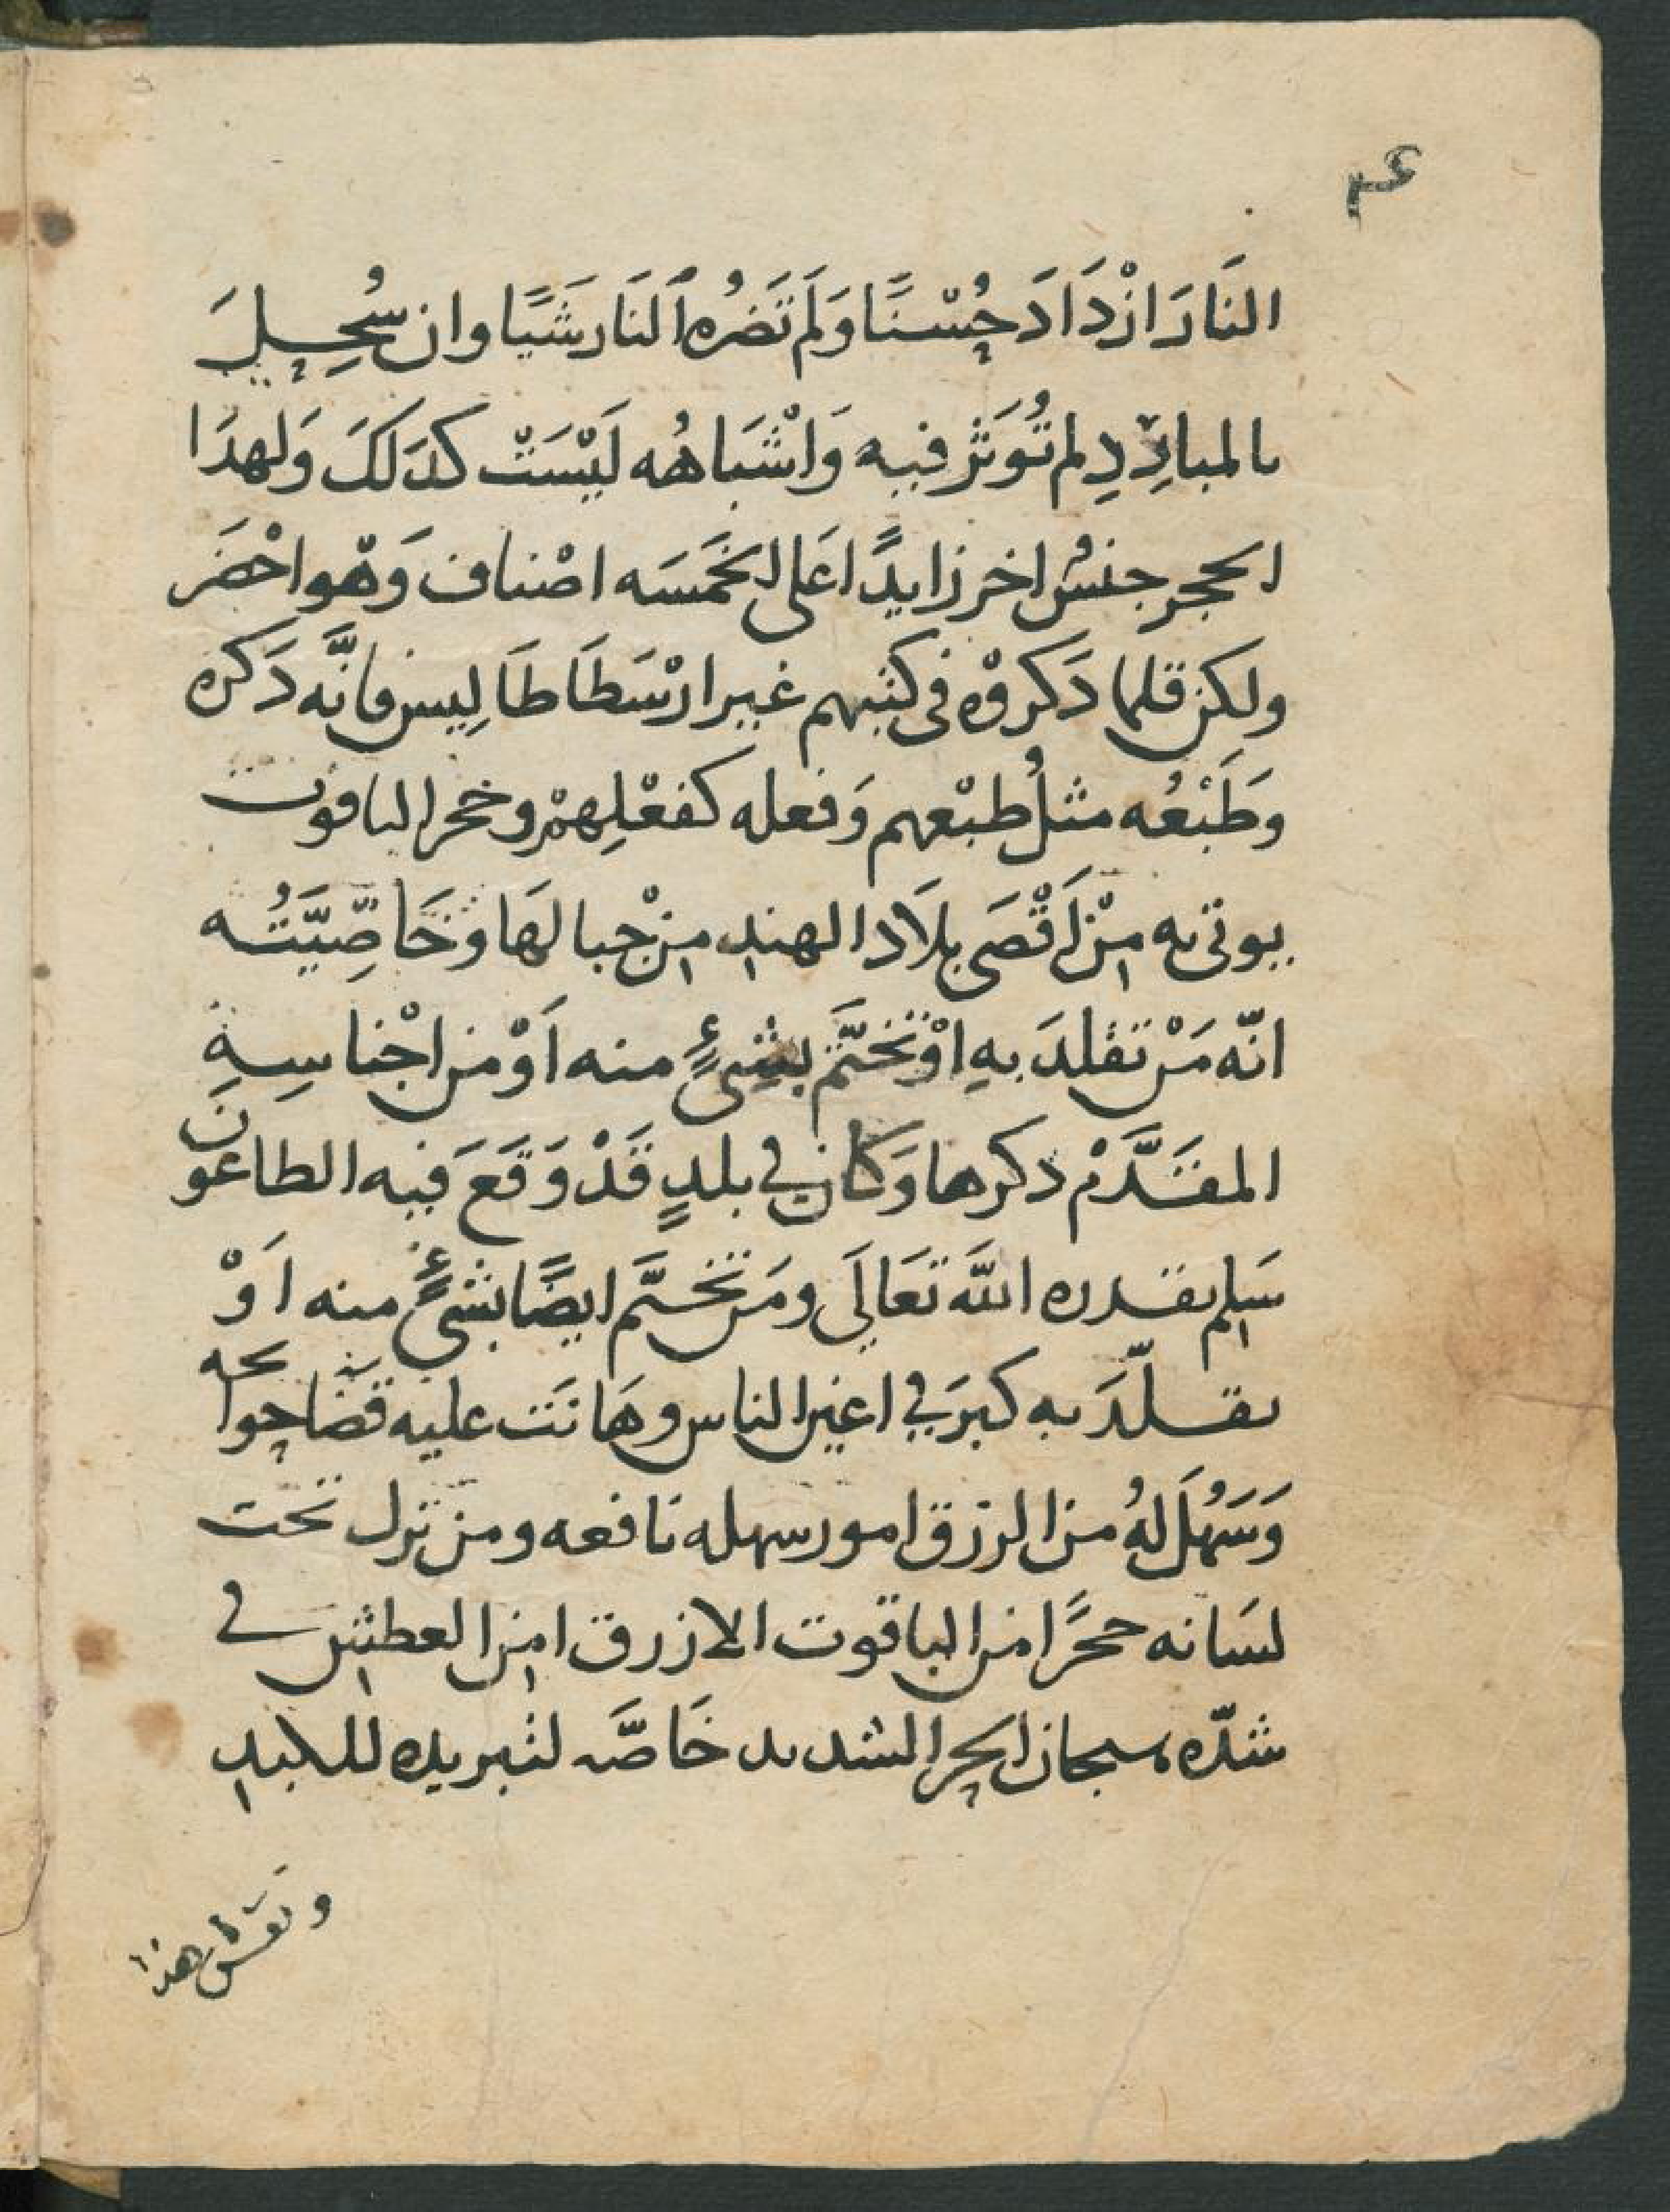 النَارَ ازْدَادَ حُسْنًا وَلَم تَضُره اَلنَار شَيًا وان سُحِلَ
بالمبارِدِ لم تُوَثر فيه وَاشْبَاهُه لَيْسَتْ كدَلكَ وَلهدَا
الحجر جنسٌ اخر زايدًا اعَلى الخَمسَه اصْناف وَهْو اخْضَر
ولكن قلما دَكروْه فى كتبهم غير ارسْطَاطَا لِيس فانَّه دَكره
وَطَبْعُه مثلُ طبْعهم وَفعله كفعْلِهمْ وحجر الياقوت
يوتى به مِنْ اَقْصَى بلَاد الهندِ مِنْ جبالهَا وَخَاصِّيَّتُه
انّه مَنْ تقلدَ بهِ اوْ تختَّم بشىءٍ منه اَوْ من اجْناسِهِ
المقَدَّمْ دكرها وَكان في بلدٍ قَدْ وَقَعَ فيه الطاعون
سَلِم بقدره اللَّه تعَالَى ومَن تختَّم ايضًا بشىءٍ منه اَوْ
تقلّدَ به كبرَ في اعين الناس وهَانَت عليه قضَا حوَايجه
وَسَهُلَ لهُ من الرزق امور سهله نافعه ومن ترك تحت
لسَانه حجرًا من الياقوت الازرق امِن العطشِ في
شدّه سيجان الحر الشديد خَاصَّه لتبريده للكبدِ
ونقش هذا